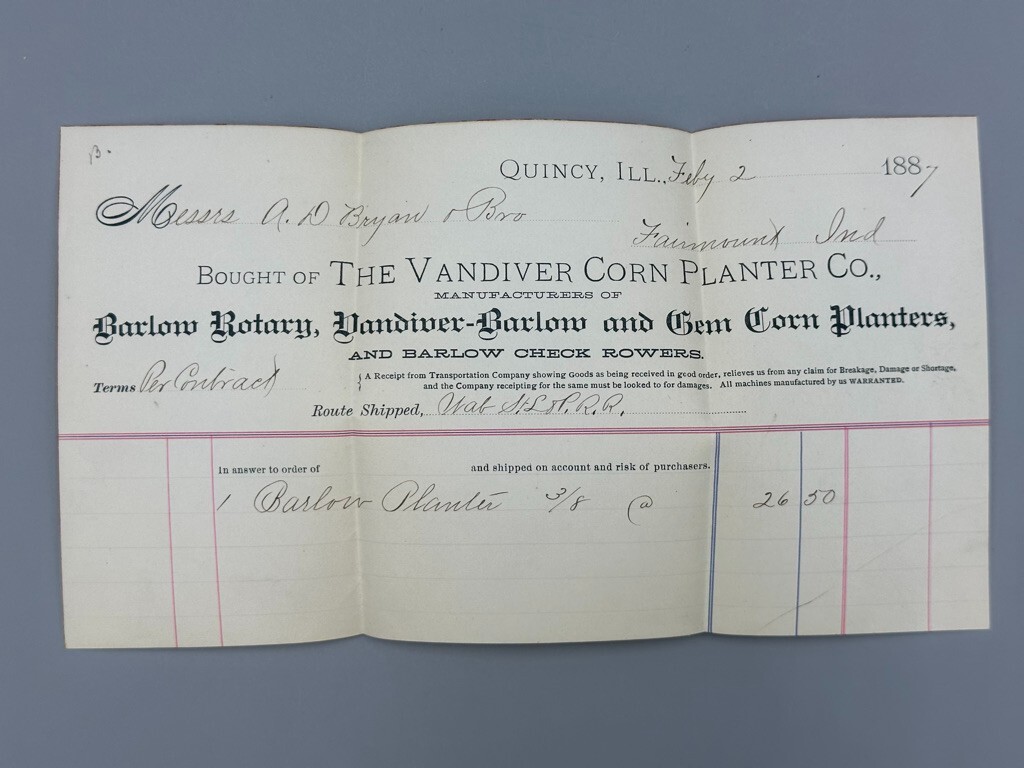 B.
QUINCY, ILL., Feby 2 1887
Messrs A. D Bryan & Bro
Fairmount Ind
BOUGHT OF THE VANDIVER CORN PLANTER CO.,
MANUFACTURERS OF
Barlow Rotary, Vandiver-Barlow and Gem Corn Planters,
AND BARLOW CHECK ROWERS.
Terms Per Contract
{ A Receipt from Transportation Company showing Goods as being received in good order, relieves us from any claim for Breakage, Damage or Shortage,
and the Company receipting for the same must be looked to for damages. All machines manufactured by us WARRANTED.
Route Shipped, Wab St. L & P. R. R.
In answer to order of and shipped on account and risk of purchasers.
1 Barlow Planter 3/8 @ 26 50